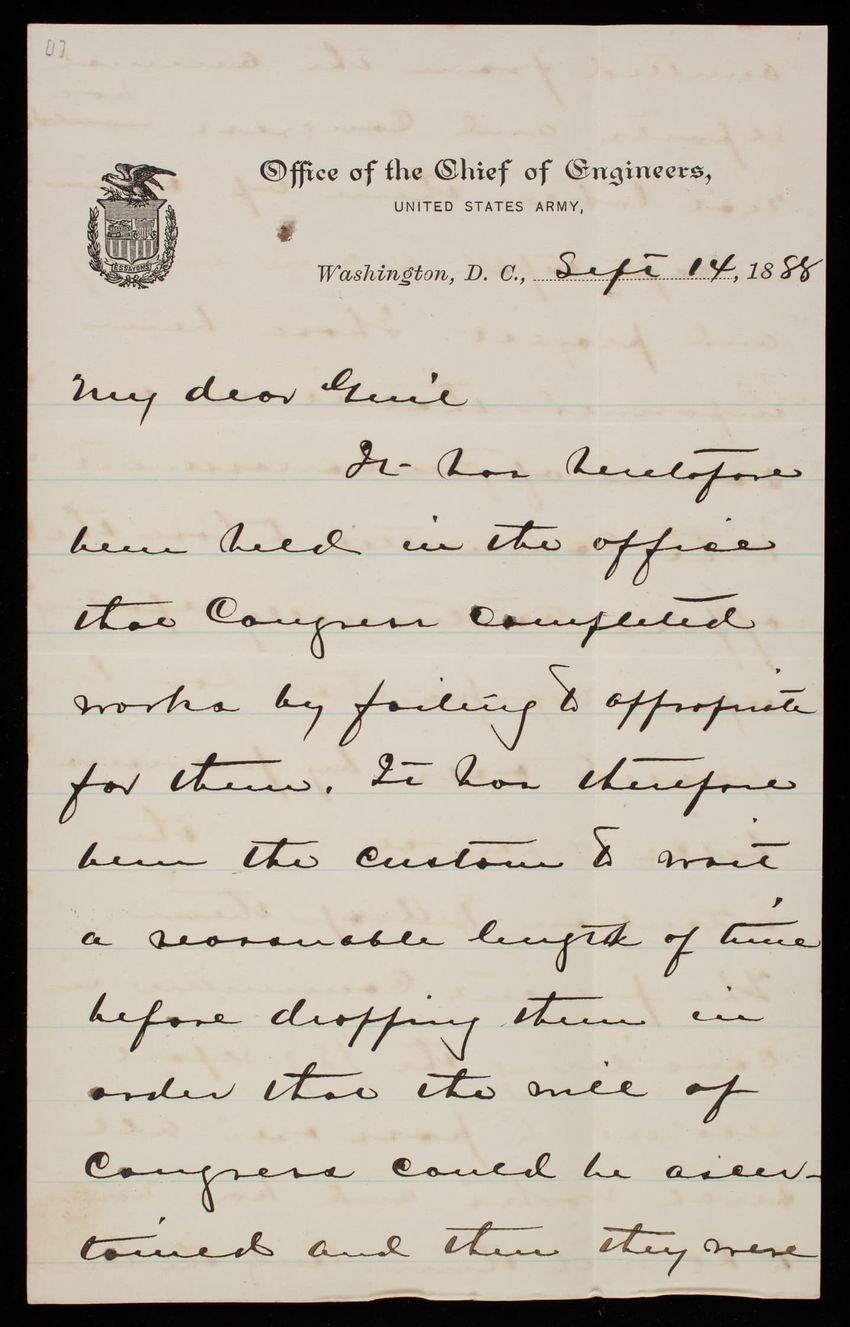 [1]
Office of the Chief of Engineers,
UNITED STATES ARMY,
ESSAYONS
Washington, D. C., Sept 14, 1888
My dear Gen'l
It has heretofore
been held in the office
that Congress completed
works by failing to appropriate
for them. It has therefore
been the custom to wait
a reasonable length of time
before dropping them in
order that the will of
Congress could be ascer-
tained and then they were